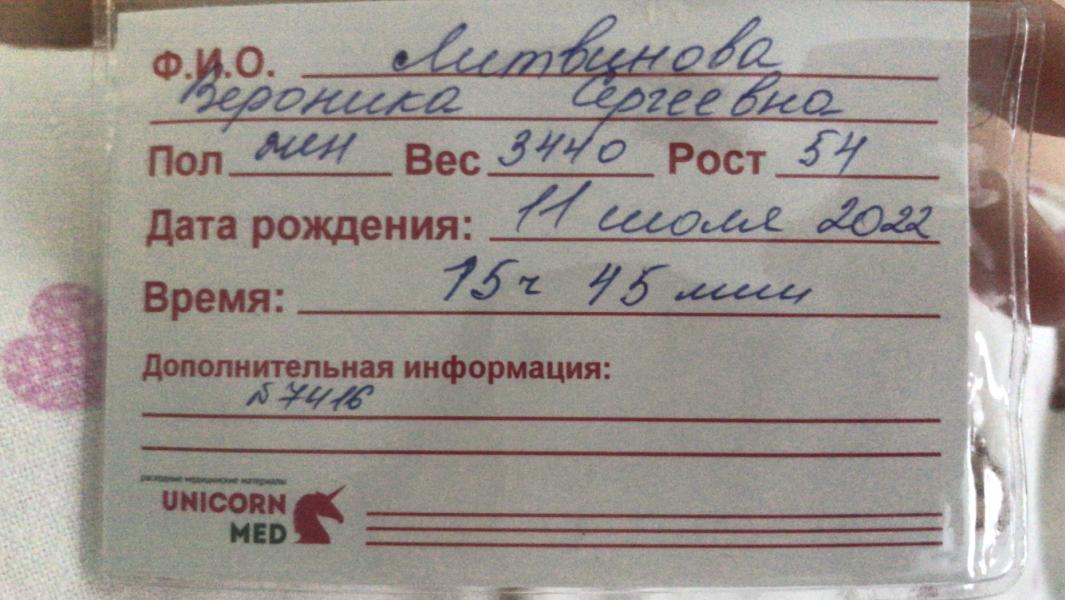 Ф.И.О. Литвинова
Вероника Сергеевна
Пол жен Вес 3440 Рост 54
Дата рождения: 11 июля 2022
Время: 15ч 45 мин
Дополнительная информация:
№ 7416
расходные медицинские материалы
UNICORN
MED